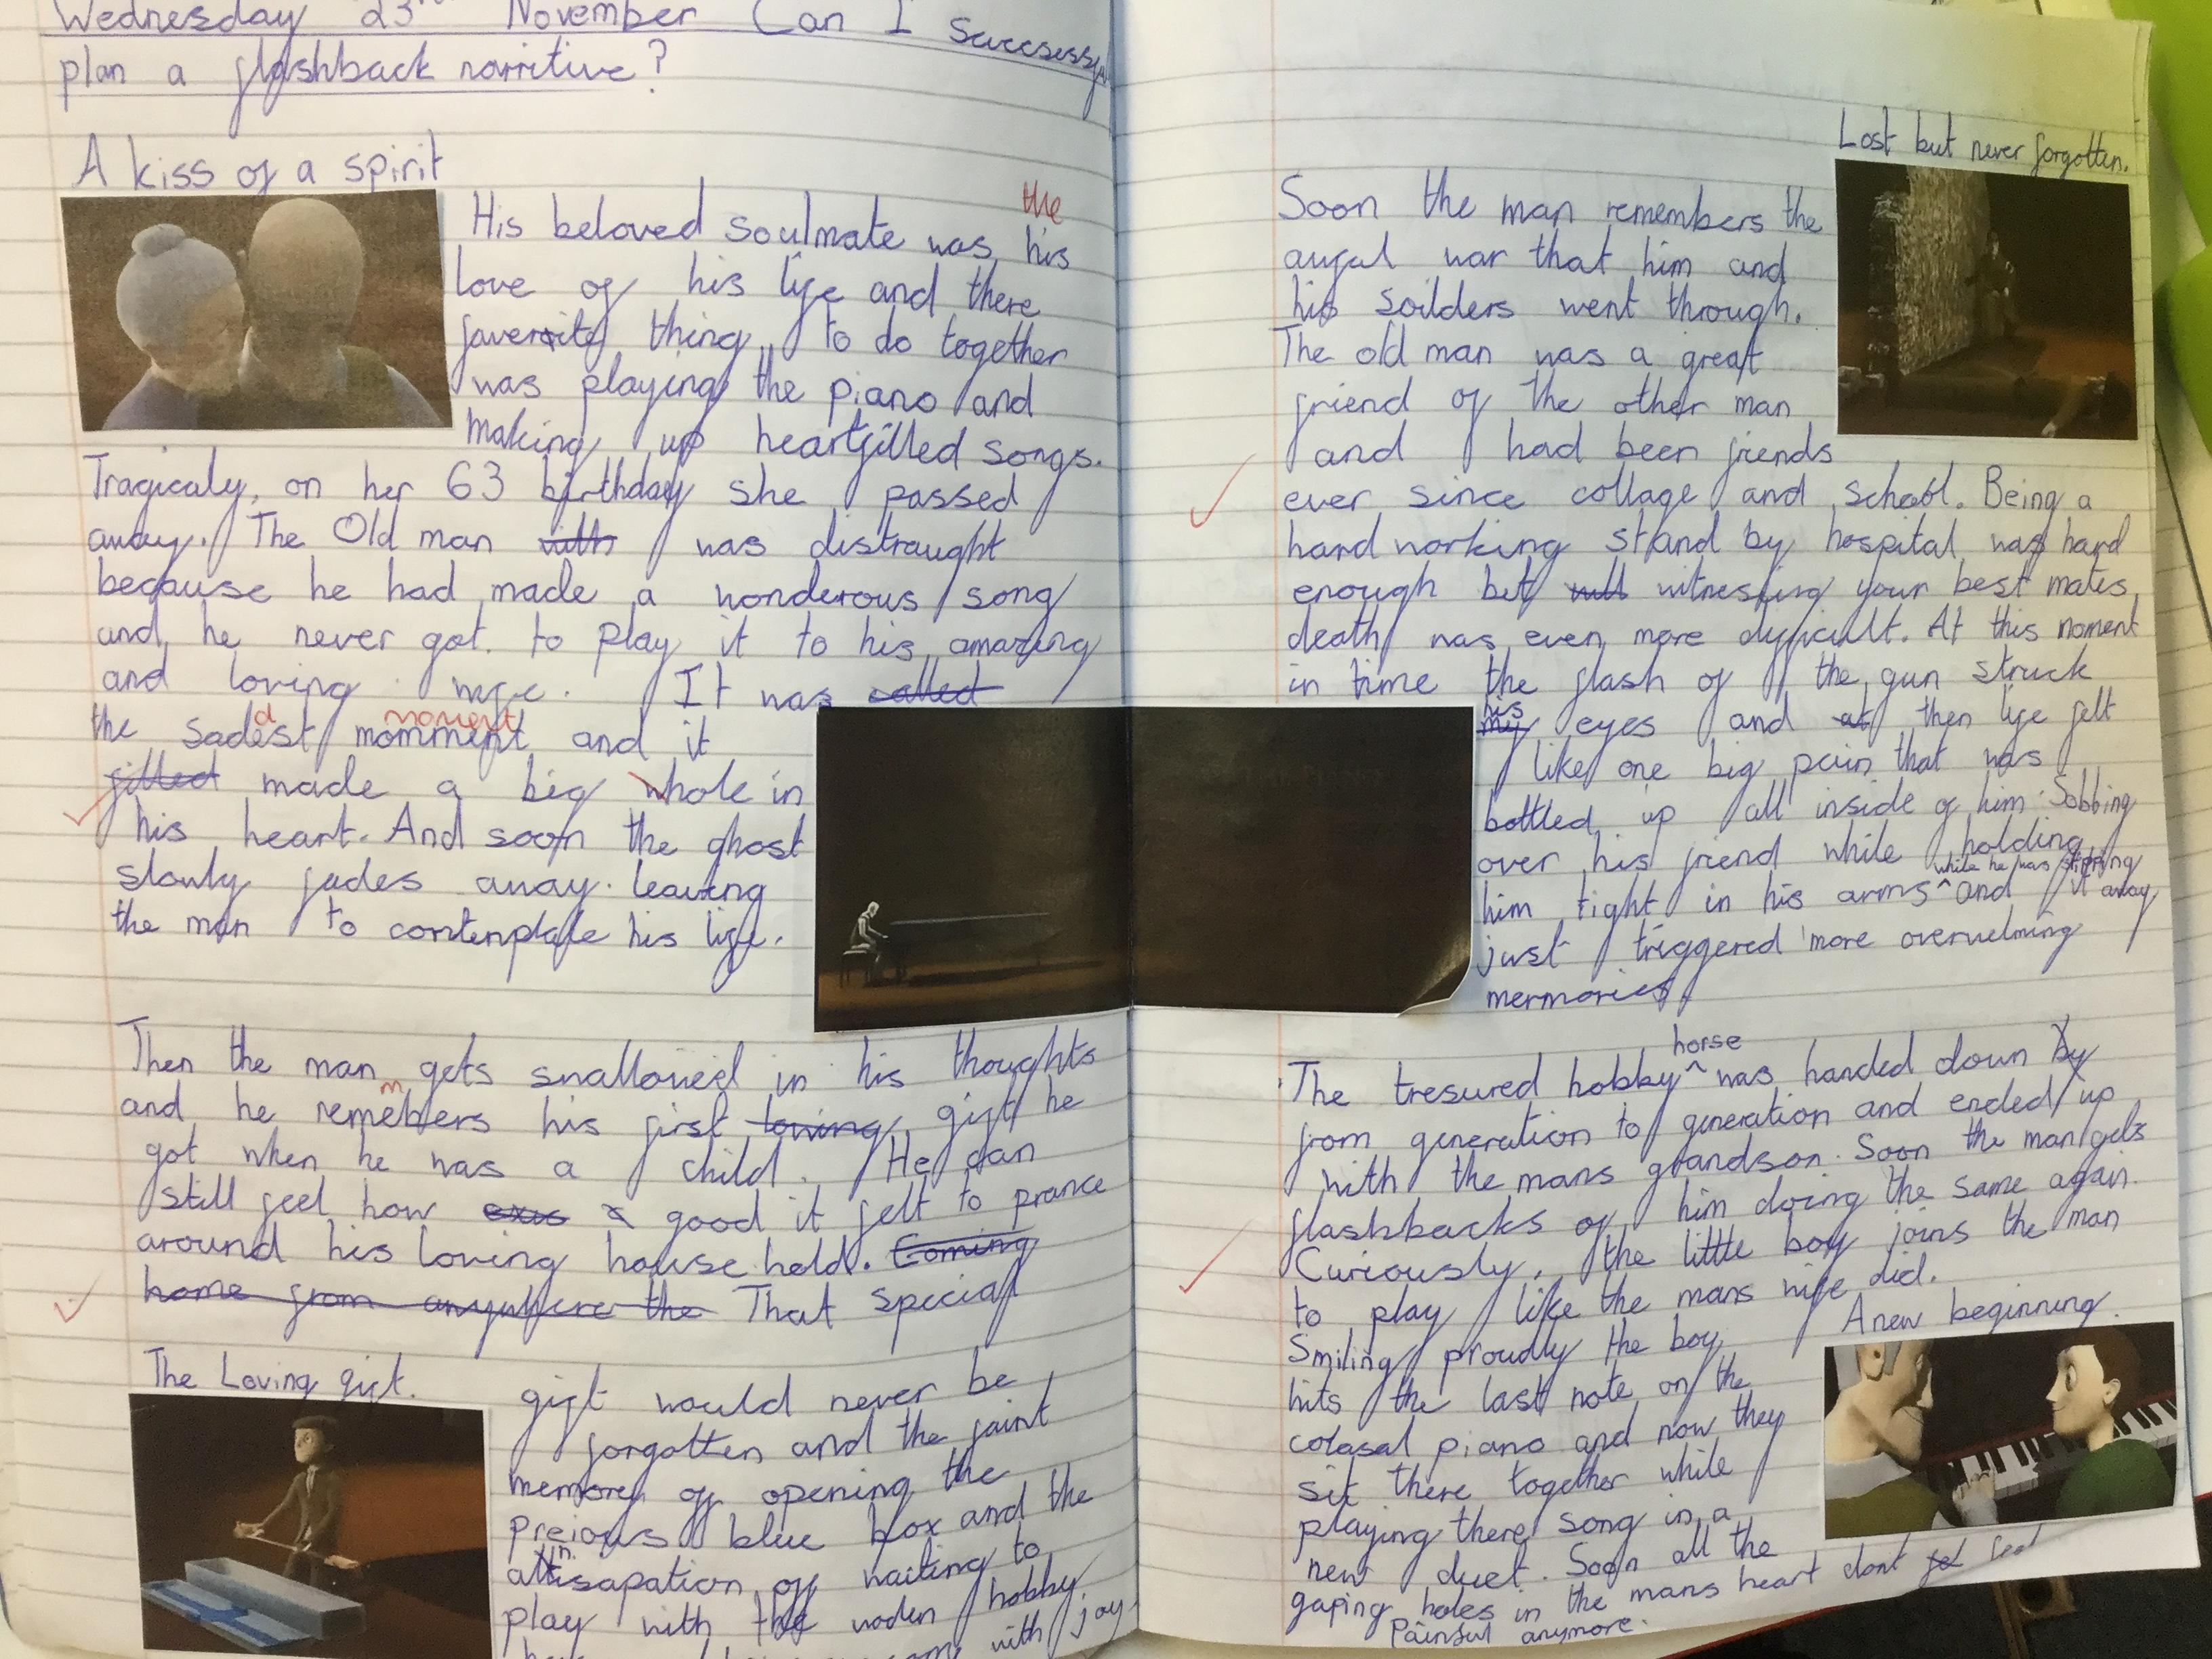 Wednesday 23rd November Can I
plan a flashback narritive?
A kiss of a spirit
the
His beloved soulmate was his
love of his life and there
faveroite thing to do together
was playing the piano and
making up heartfilled songs.
Tragicaly, on her 63 birthday she passed
away. The Old man with was distraught
because he had made a wonderous song
and he never got to play it to his amazing
and loving wife. It was called
the sadest momment and it
d moment
filled made a big whole in
his heart. And soon the ghost
slowly fades away. leaving
the man to contemplate his life.
Then the man gets swallowed in his thoughts
m
and he remebers his first loving gift he
got when he was a child. He can
still feel how good it felt to prance
around his loving house hold. Coming
home from anywhere the That special
The Loving gift.
gift would never be
forgotten and the faint
memory of opening the
preious blue box and the
of waiting to
play with the woden hobby
with joy
Lost but never forgotten.
Soon the man remembers the
auful war that him and
his soilders went through.
The old man was a great
friend of the other man
and had been friends
ever since collage and school. Being a
hard working stand by hospital was hard
enough but witnessing your best mates
death was even more difficult. At this moment
in time the flash of the gun struck
his
my eyes and at then life felt
like one big pain that was
bottled up all inside of him. Sobbing
over his friend while holding
while he was slipping
him tight in his arms ^ and it away
just triggered more overwelming
mermories
horse
The tresured hobby ^ was handed down by
from generation to generation and ended up
with the mans grandson. Soon the man gets
flashbacks of him doing the same again.
Curiously, the little boy joins the man
to play like the mans wife did.
A new beginning.
Smiling proudly the boy
hits the last note on the
colasal piano and now they
sit there together while
playing there song in a
new duet. Soon all the
gaping holes in the mans heart dont feel
painful anymore.